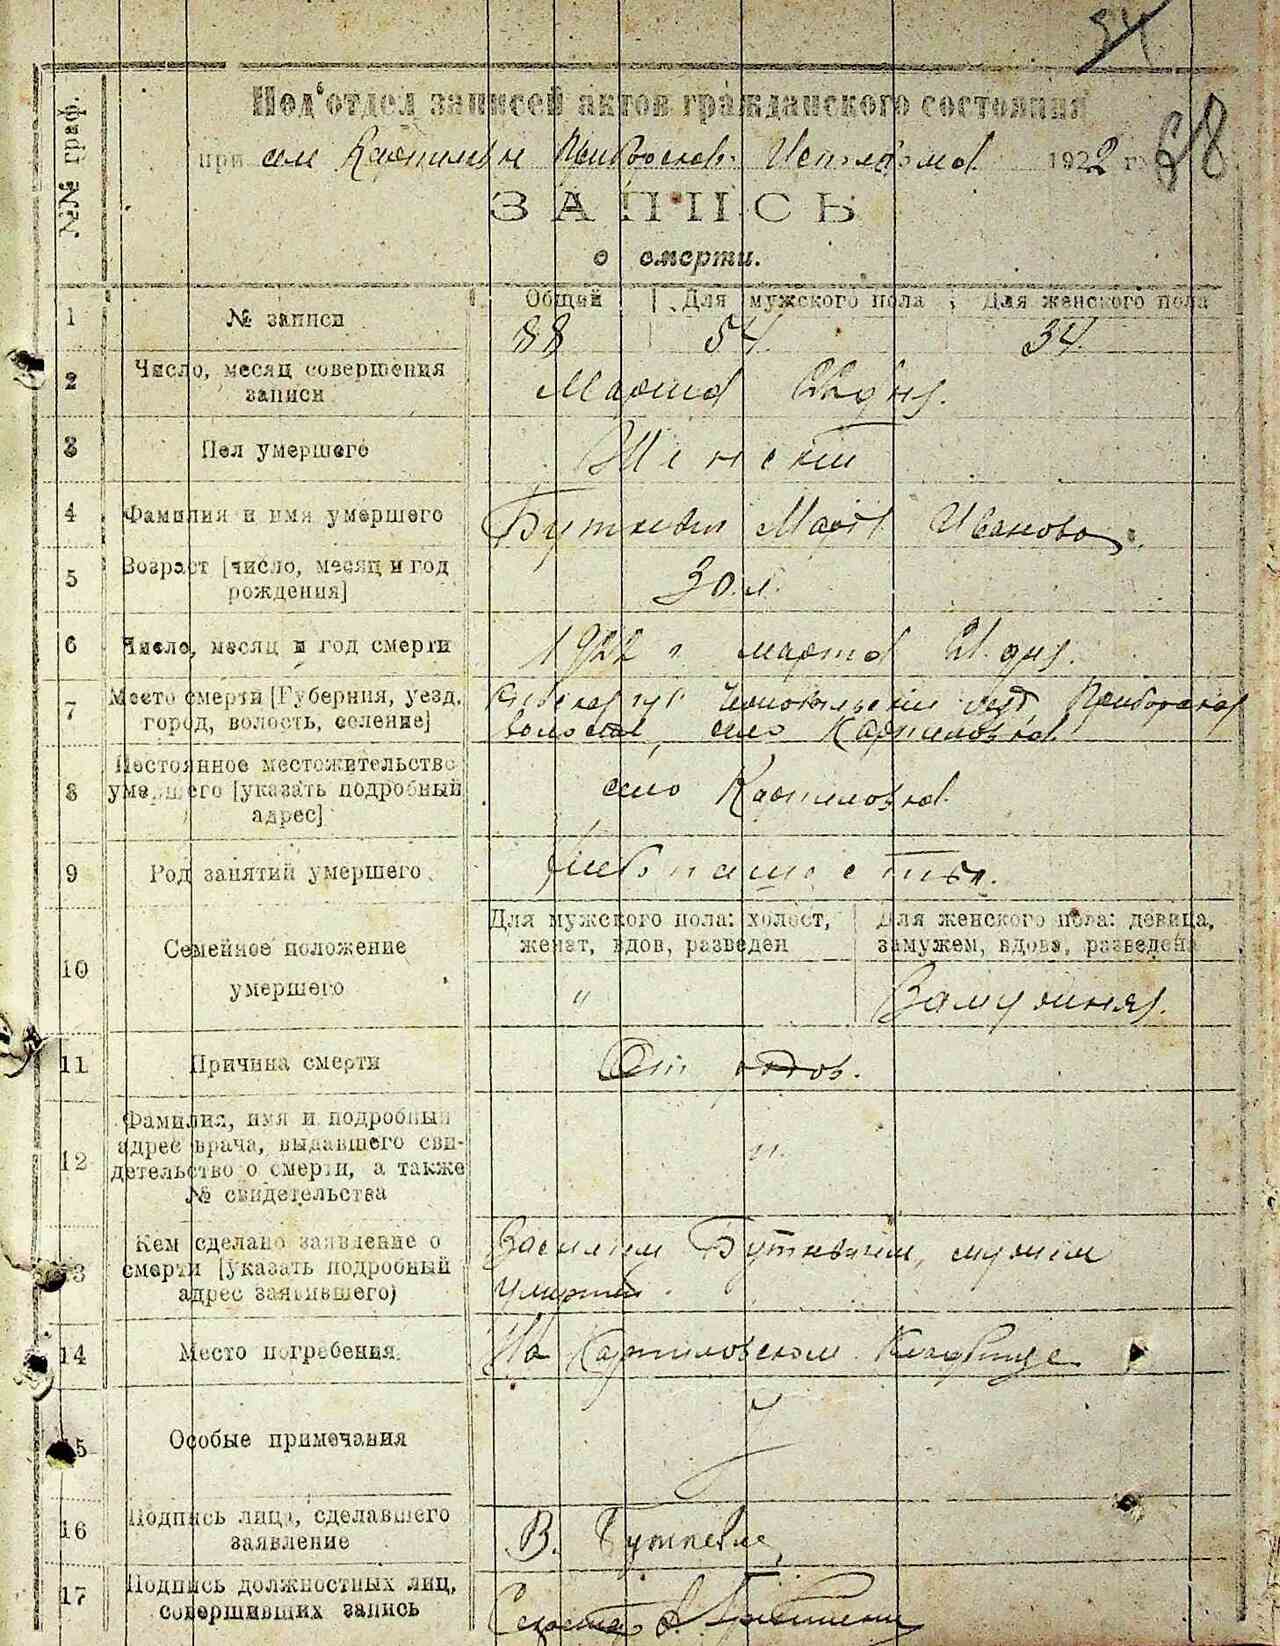 34
Под'отдел записей актов гражданского состояния
при 1922 г.
68
ЗАПИСЬ
о смерти.
№№ граф.
Общий Для мужского пола Для женского пола
1 № записи 88 54 34
2 Число, месяц совершения записи Марта 22 дня.
3 Пол умершего Женский
4 Фамилия и имя умершего Марія Иванова
5 Возраст [число, месяц и год рождения] 30 л.
6 Число, месяц и год смерти 1922 г. марта 21 дня.
7 Место смерти [Губерния, уезд, город, волость, селение] Киевская губ Чернобыльский уезд Приборская
волость, село Карпиловка
8 Постоянное местожительство умершего [указать подробный адрес] село Карпиловка
9 Род занятий умершего Хлебпашество.
10 Семейное положение умершего
Для мужского пола: холост, женат, вдов, разведен
Для женского пола: девица, замужем, вдова, разведена
" Замужняя.
11 Причина смерти От
12 Фамилия, имя и подробный адрес врача, выдавшего свидетельство о смерти, а также № свидетельства "
13 Кем сделано заявление о смерти [указать подробный адрес заявившего) Василием мужем
умершей.
14 Место погребения На Карпиловском Кладбище
15 Особые примечания
16 Подпись лица, сделавшего заявление В.
17 Подпись должностных лиц, совершивших запись